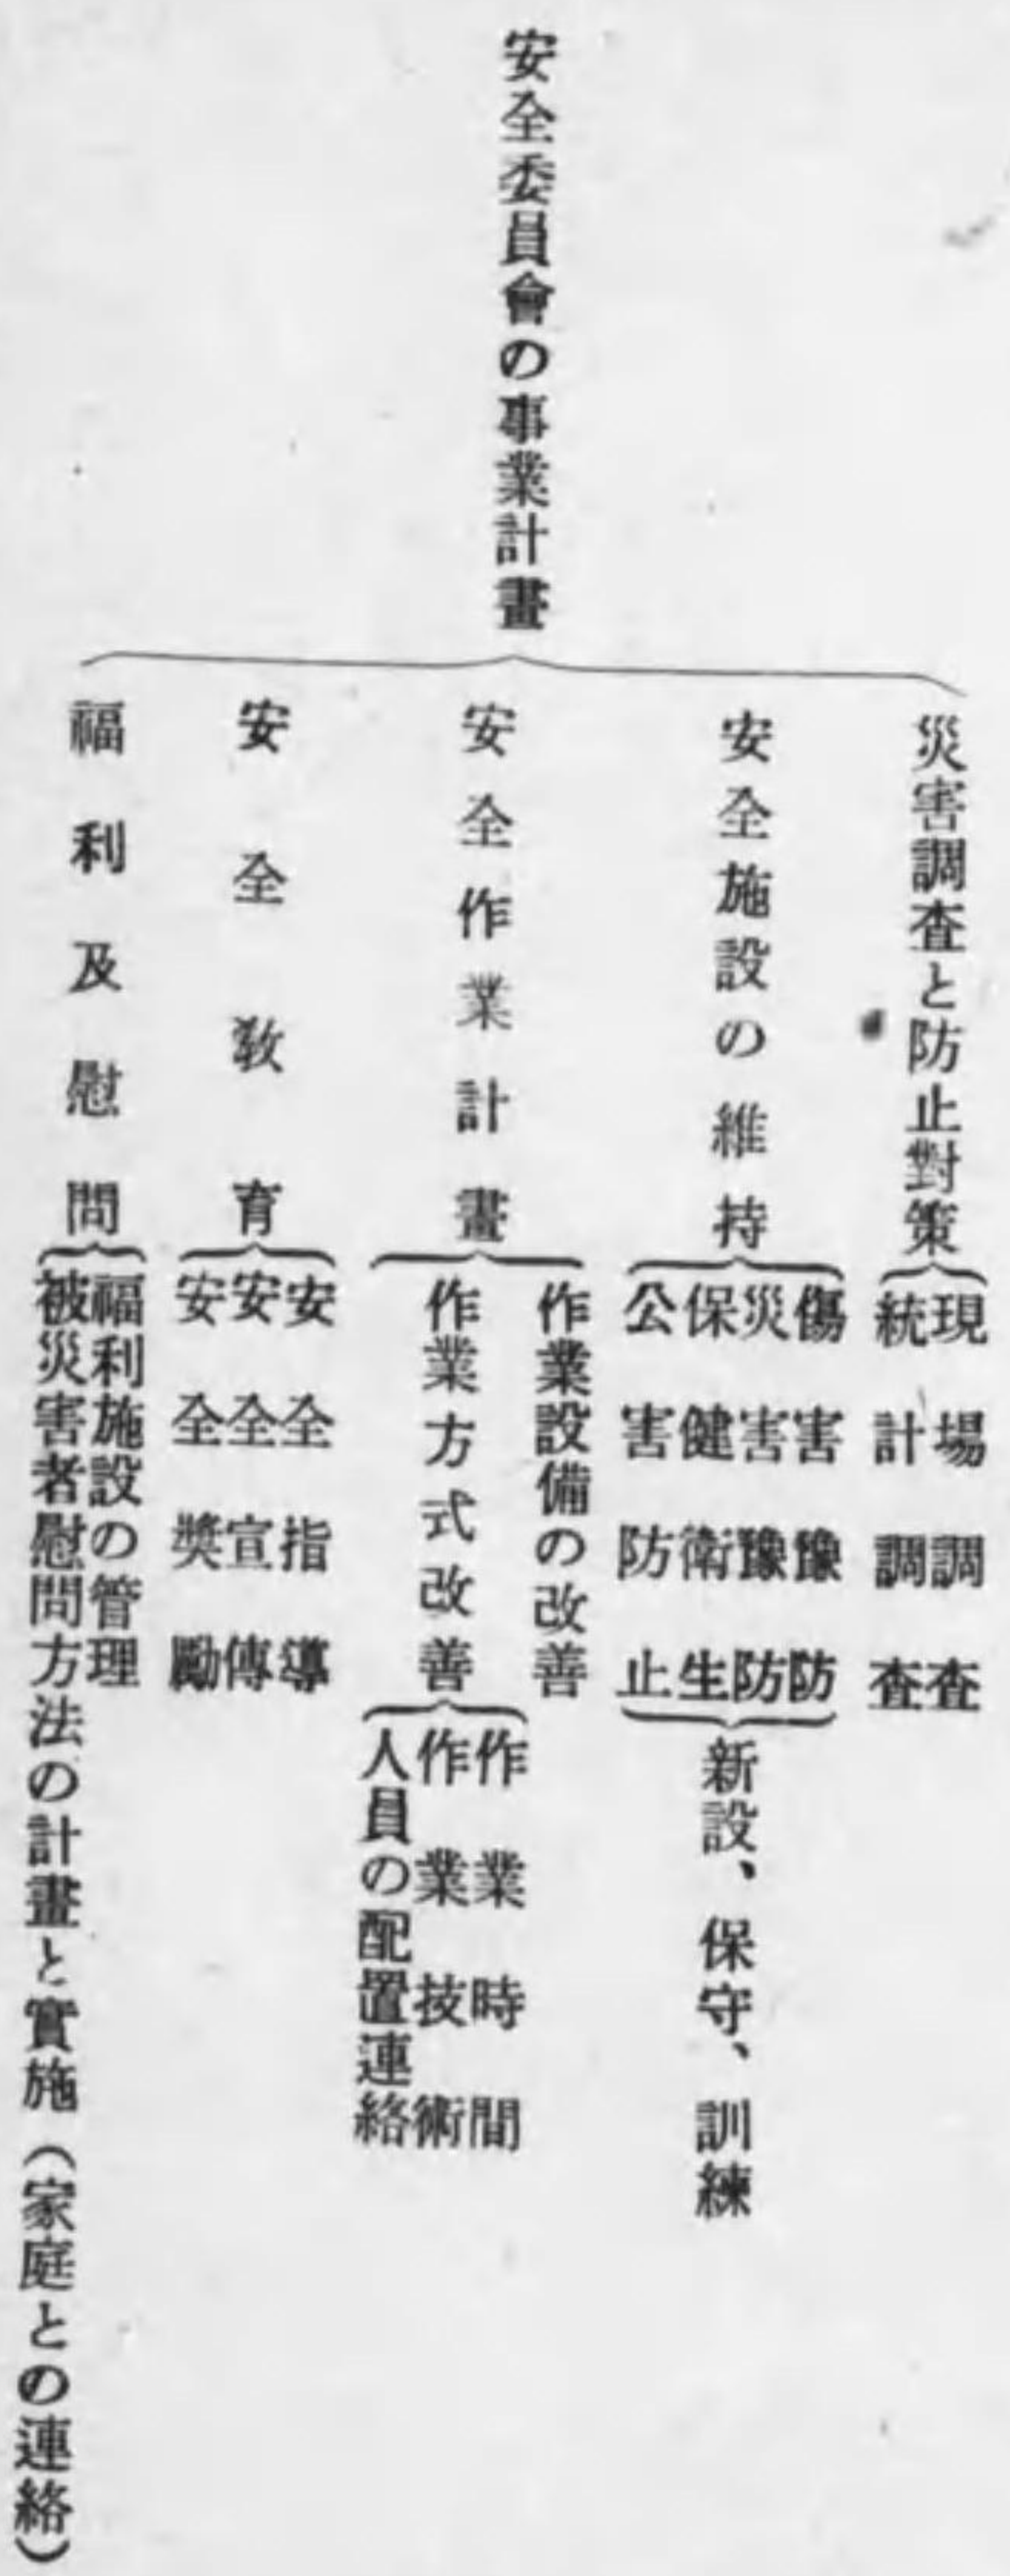 安全委員會の事業計畫
災害調査と防止對策
現場調査
統計調査
安全施設の維持
傷害豫防
災害豫防
保健衛生
公害防止
新設、保守、訓練
安全作業計畫
作業設備の改善
作業方式改善
作業時間
作業技術
人員の配置連絡
安全敎育
安全指導
安全宣傳
安全奬勵
福利及慰問
福利施設の管理
被災害者慰問方法の計畫と實施（家庭との連絡）